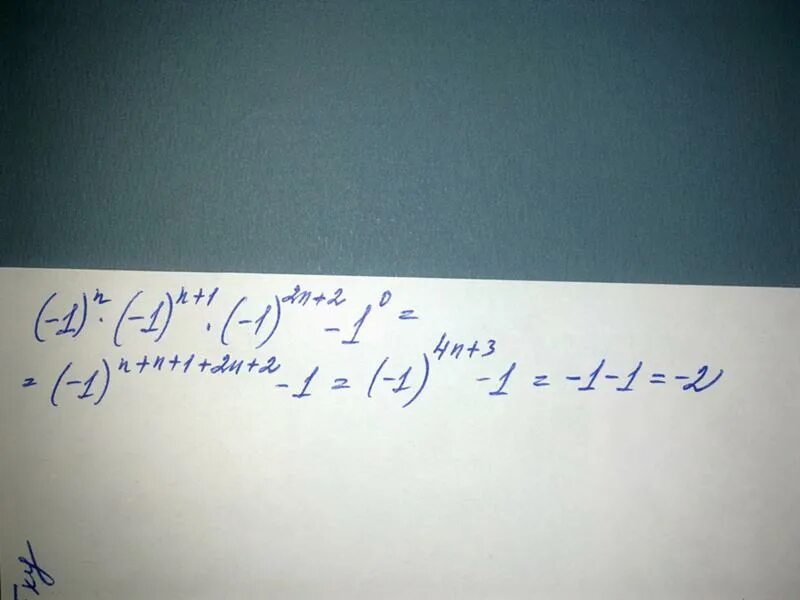 (-1)^n · (-1)^{n+1} · (-1)^{2n+2} - 1^0 =
= (-1)^{n+n+1+2n+2} - 1 = (-1)^{4n+3} - 1 = -1-1 = -2
ху